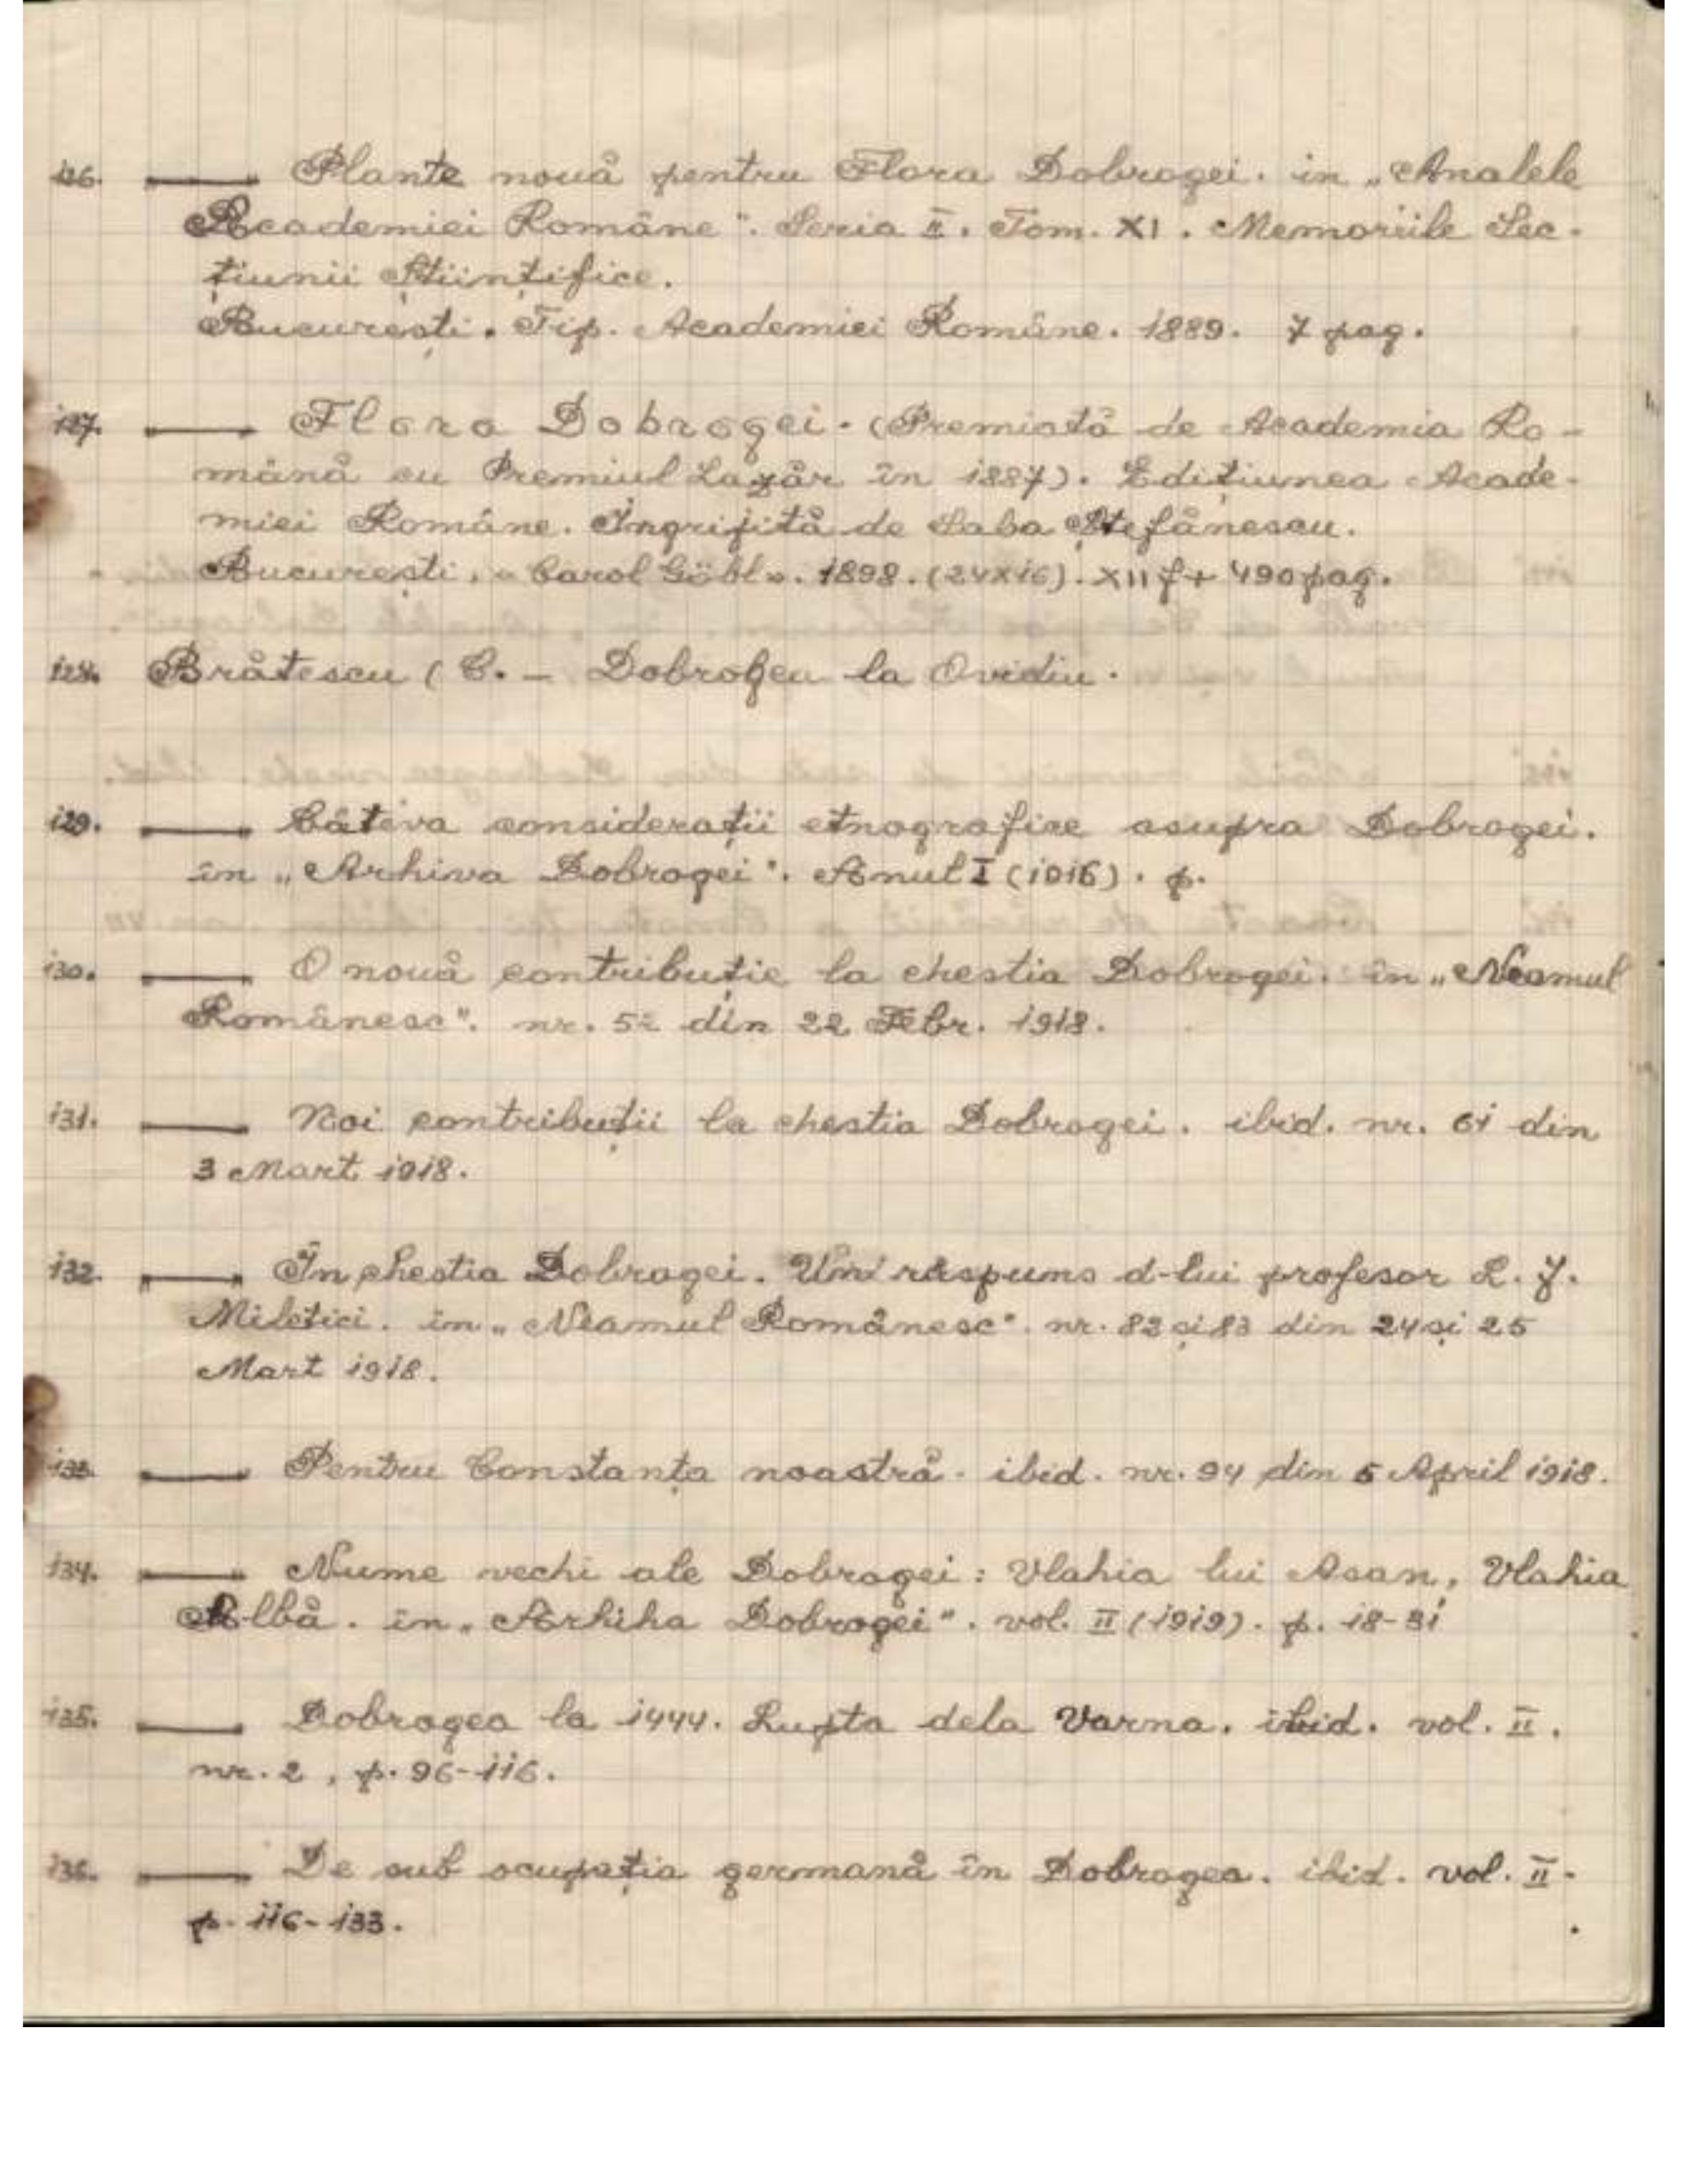 126. — Plante nouă pentru Flora Dobrogei. in „Analele
Academiei Române". Seria II. Tom. XI. Memoriile Sec-
țiunii Științifice.
București. Tip. Academiei Române. 1889. 7 pag.
127. — Flora Dobrogei. (Premiată de Academia Ro-
mână cu Premiul Lazăr în 1887). Edițiunea Acade-
miei Române. Îngrijită de Saba Ștefănescu.
București. „Carol Göbl". 1898. (24X16). XII f + 490 pag.
128. Brătescu (C. – Dobrogea la Ovidiu.
129. — Câteva considerații etnografice asupra Dobrogei.
în „Arhiva Dobrogei". Anul I (1916). p.
130. — O nouă contribuție la chestia Dobrogei. în „Neamul
Românesc". nr. 52 din 22 Febr. 1918.
131. — Noi contribuții la chestia Dobrogei. ibid. nr. 61 din
3 Mart 1918.
132. — În chestia Dobrogei. Un răspuns d-lui profesor L. J.
Miletici. în „Neamul Românesc". nr. 82 și 83 din 24 și 25
Mart 1918.
133. — Pentru Constanța noastră. ibid. nr. 94 din 5 April 1918.
134. — Nume vechi ale Dobrogei: Vlahia lui Asan, Vlahia
Albă. în „Arhiha Dobrogei". vol. II (1919). p. 18-31
135. — Dobrogea la 1444. Lupta dela Varna. ibid. vol. II.
nr. 2, p. 96-116.
136. — De sub ocupația germană în Dobrogea. ibid. vol. II.
p. 116-133.